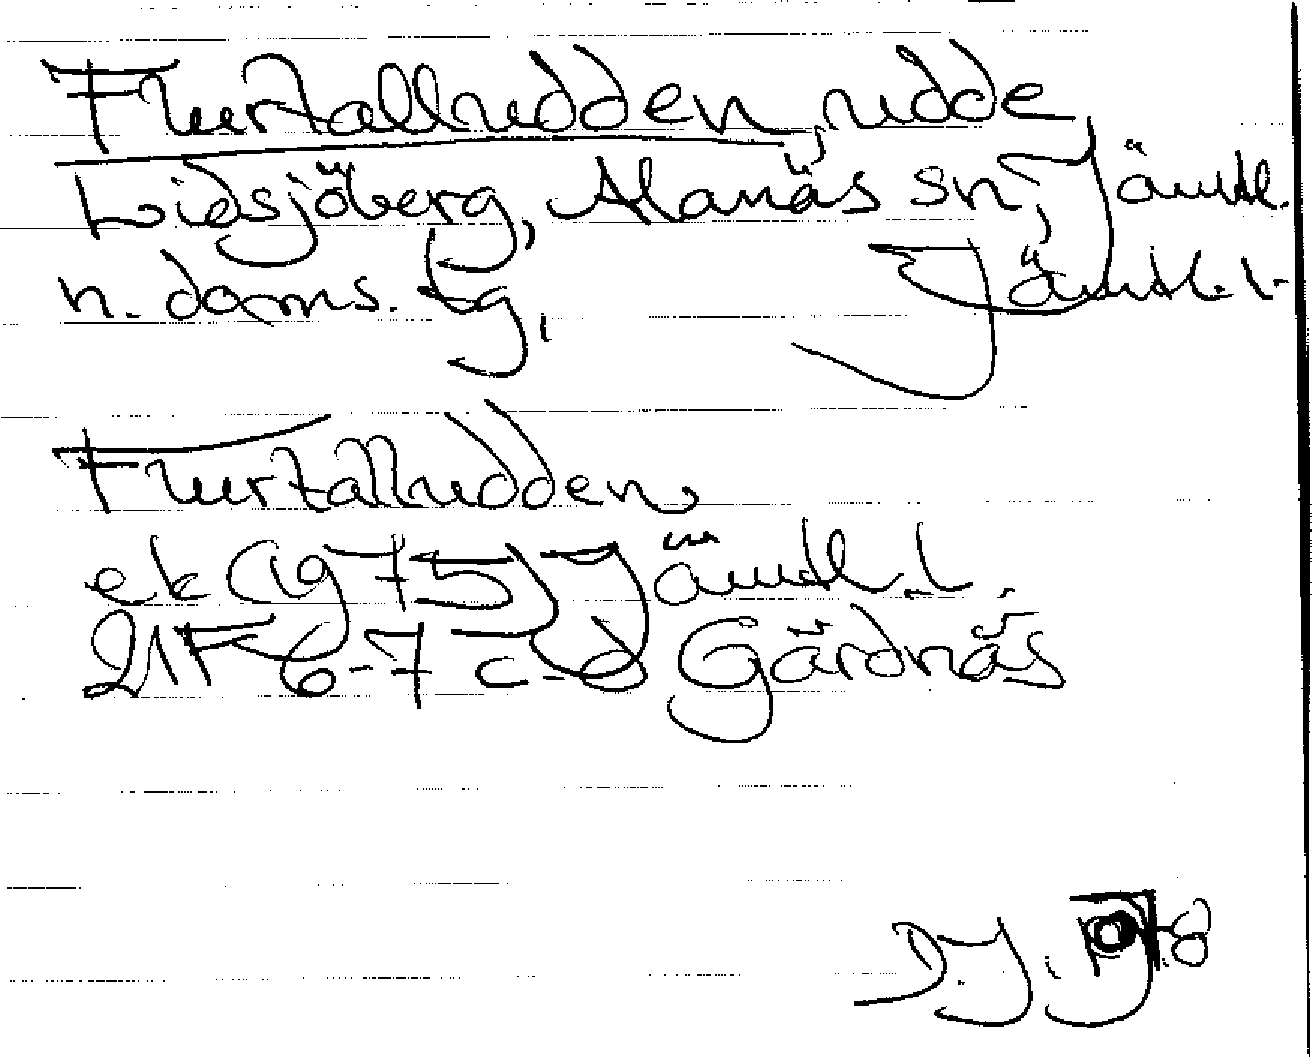 Flurtallrudden, udde,
Lidsjöberg, Alanäs sn, Jämtl.
n. doms. tg, Jämtl. l.
Flurtallrudden,
ek (1975) Jämtl. L.
21F 6-7 c-d Gärdnäs
D.J.